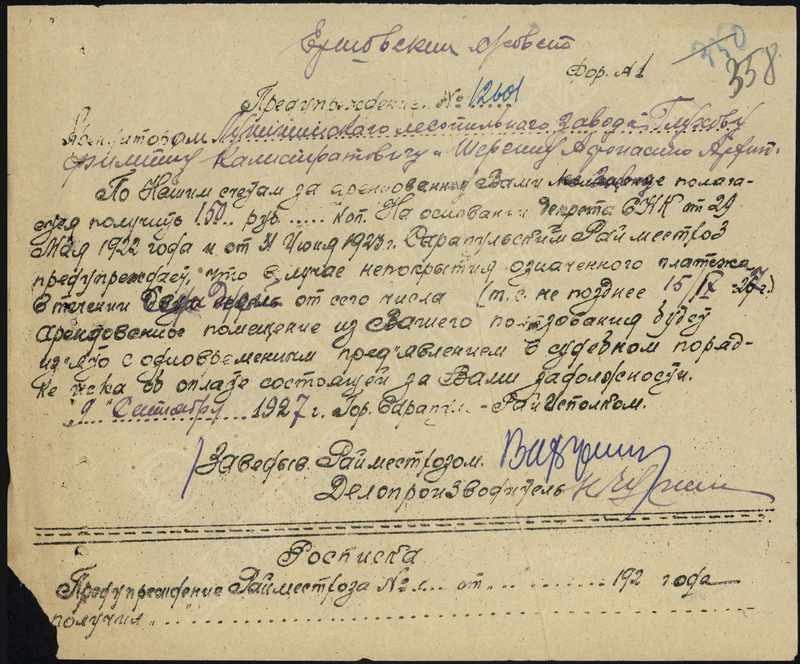 Ершовский с/совет
350
358
Фор. №1
Предупреждение. № 12601
Арендаторам лесопильного завода Глухову
Филиппу Калистратовичу и Шерешину Афонасию Архип.
По Нашим счетам за арендованную Вами полага-
ется получить 150.. руб...... коп. На основании Декрета СНК от 29
Мая 1922 года и от Июня 1923 г. Сарапульский Райместхоз
предупреждает, что в случае непокрытия означенного платежа
в течении от сего числа (т.е. не позднее 15/IX-27 г.)
арендованное помещение из Вашего пользования будет
из'ято с одновременным пред'явлением в судебном поряд-
ке иска об оплате состоящей за Вами задолжности.
"9" Сентября 1927 г. Гор. Сарапул - РайИсполком.
Заведыв. Райместхозом.
Делопроизводитель
Росписка
Предупреждение Райместхоза № от 192 года
получил